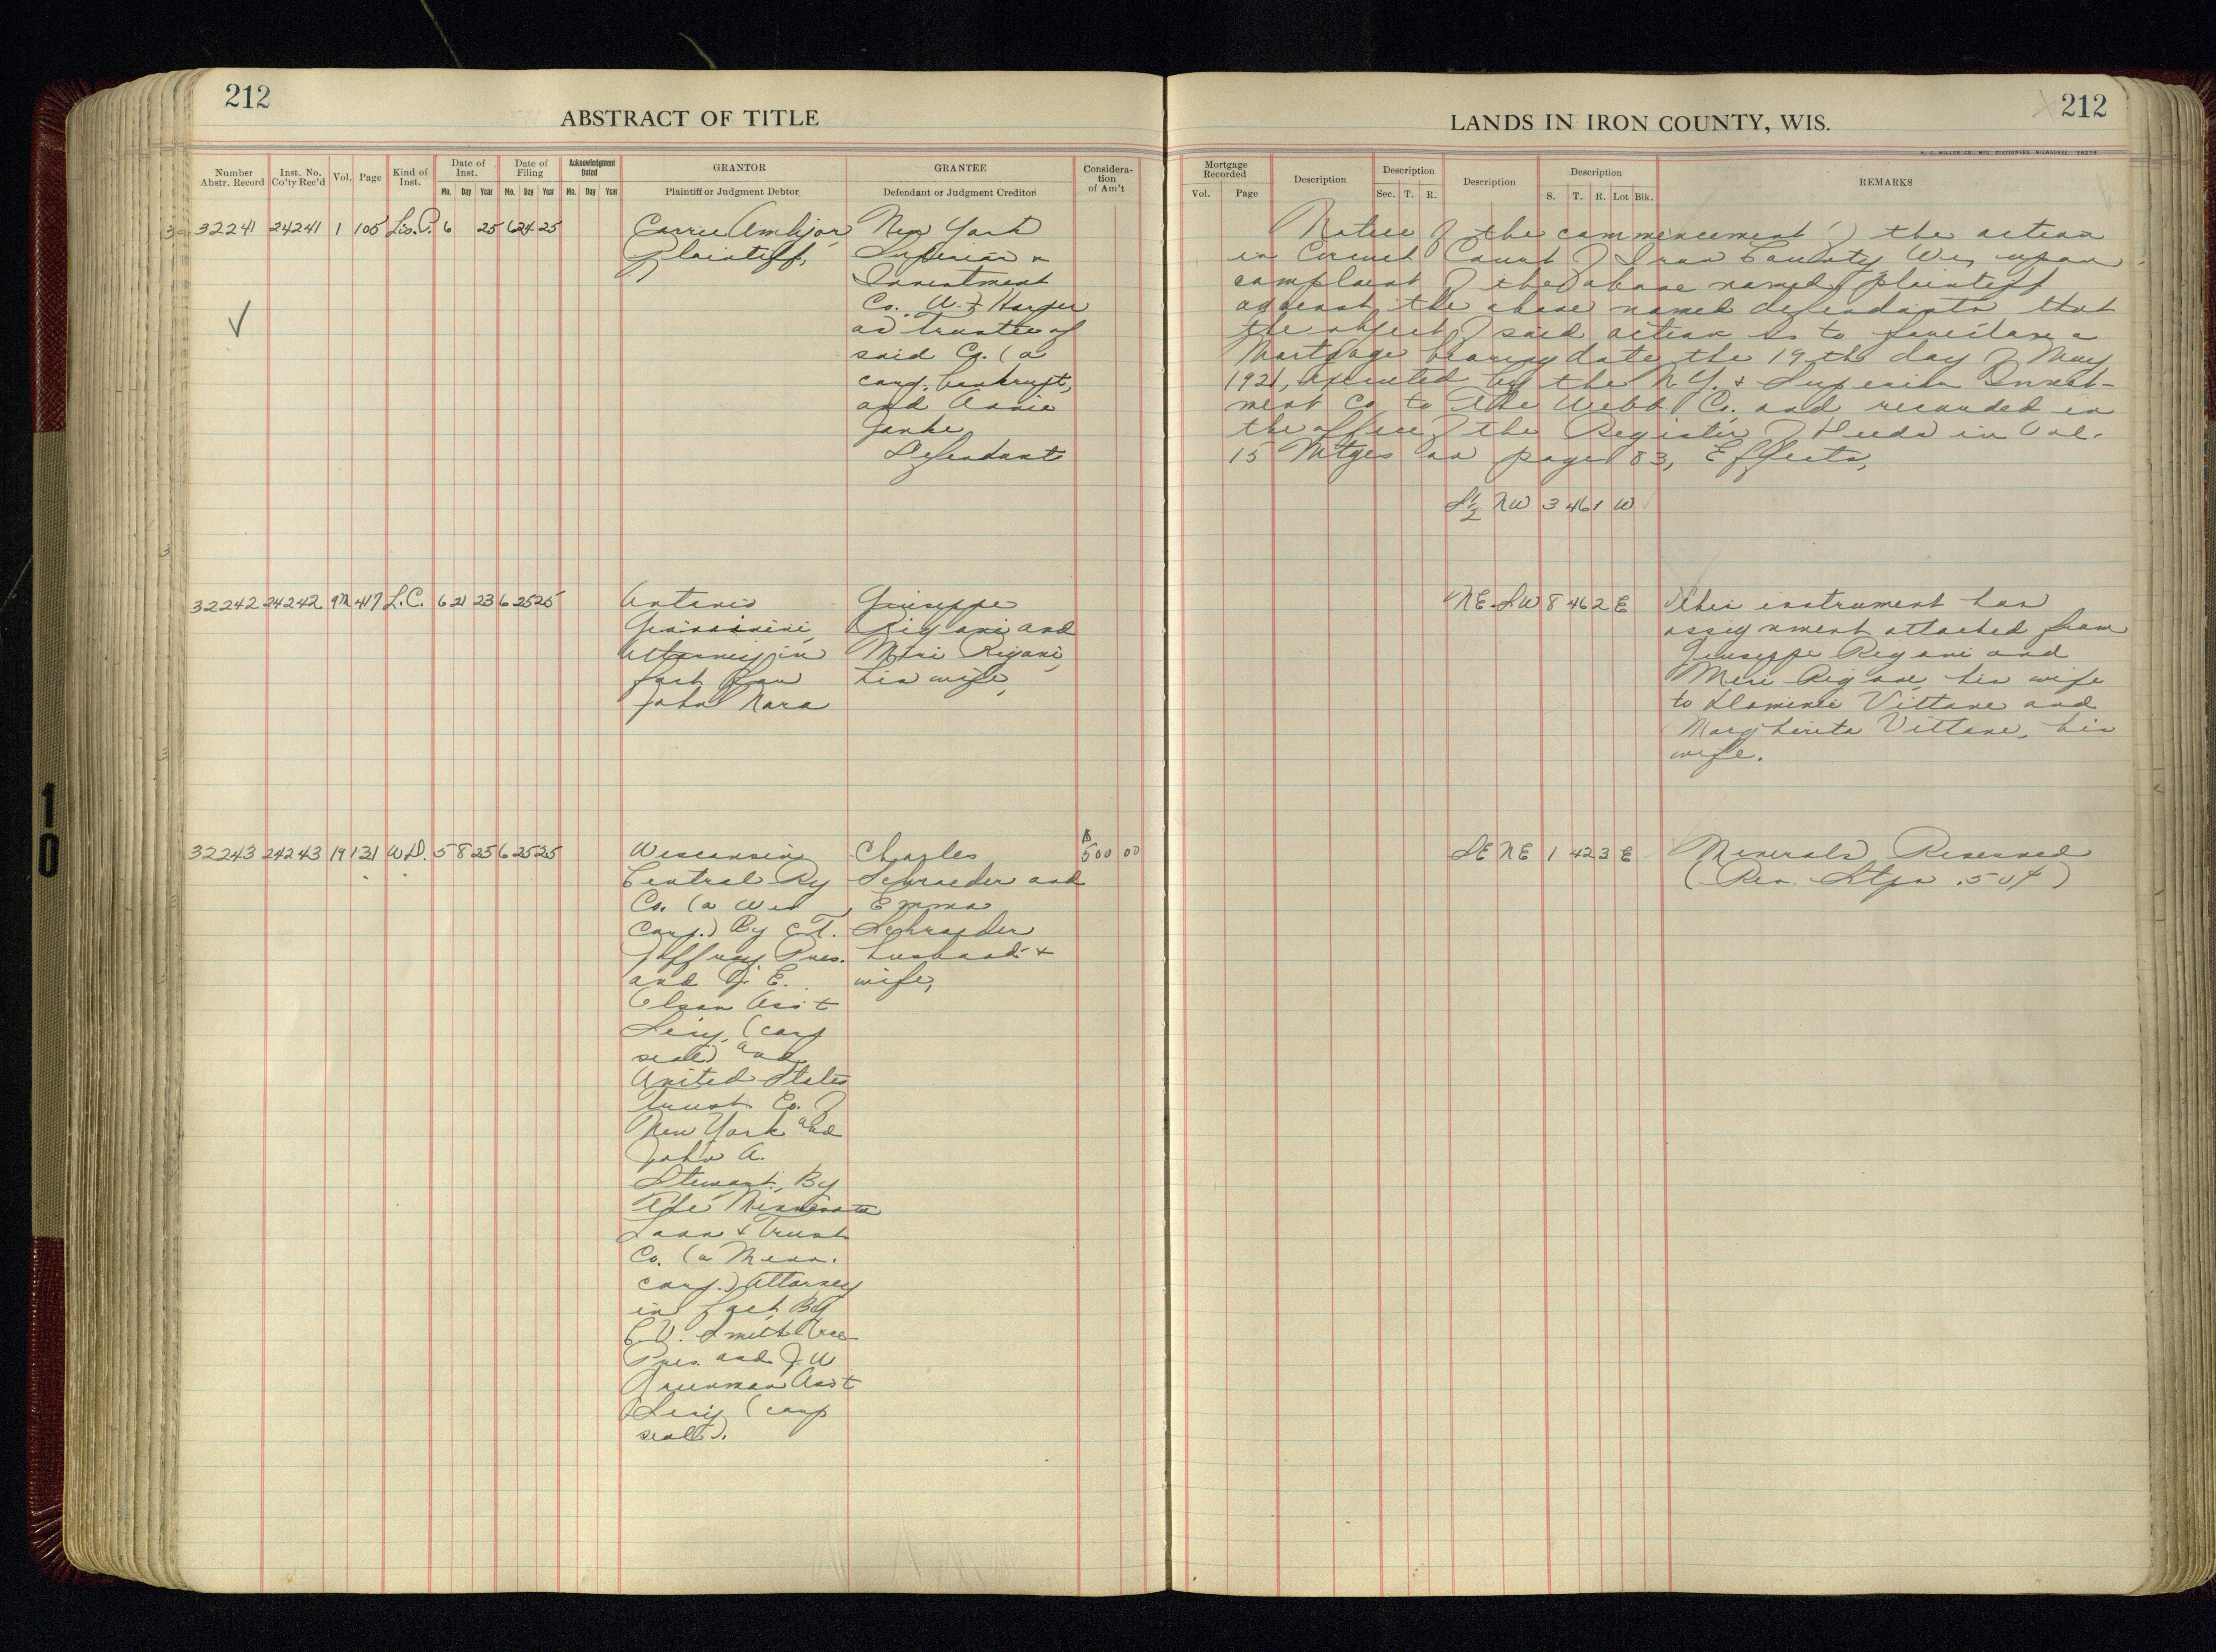 212
ABSTRACT OF TITLE
Number Abstr. Record
Inst. No. Co'ty Rec'd
Vol.
Page
Kind of Inst.
Date of Inst.
Mo. Day Year
Date of Filing
Mo. Day Year
Acknowledgment Dated
Mo. Day Year
GRANTOR
Plaintiff or Judgment Debtor
GRANTEE
Defendant or Judgment Creditor
Considera-tion of Am't
32241 24241 1 105 Lis. P. 6 25 6 24 25
Carrie
Plaintiff,
New York
Superior
Investment
Co. Harper
as trustee of
said Co. (a
corp. bankrupt,
and Annie
Janke
Defendant
32242 24242 9M 417 L.C. 6 21 23 6 25 25
Antonio
Attorney in
fact for
John Nara
Giuseppe
Rigoni and
Meri Rigoni,
his wife,
32243 24243 19 131 W.D. 5 8 25 6 25 25
Wisconsin
Central Ry
Co. (a Wis
corp.) By C.T.
Jaffray Pres.
and E.
Olson Ass't
Secy. (corp
seal) and
United States
Trust Co. of
New York and
John A.
Stewart, By
The Minnesota
Loan & Trust
Co. (a Minn.
corp.) Attorney
in fact By
Smith Vice
Pres. and W
Greenman Ass't
Secy (corp
seal).
Charles
Schraeder and
Emma
Schraeder
husband &
wife,
$500 00
LANDS IN IRON COUNTY, WIS.
212
H. C. MILLER CO., MFG. STATIONERS, MILWAUKEE
Mortgage Recorded
Vol. Page
Description
Description
Sec. T. R.
Description
Description
S. T. R. Lot Blk.
REMARKS
Notice of the commencement of the action
in Circuit Court of Iron County Wis, upon
complaint of the above named plaintiff
against the above named defendants that
the object of said action is to foreclose a
Mortgage bearing date the 19th day of May
1921, executed by the N.Y. & Superior Invest-
ment Co. to The Webb Co. and recorded in
the office of the Register of Deeds in Vol.
15 Mtges on page 83, Effects,
S½ NW 3 46 1 W
NE SW 8 46 2 E
This instrument has
assignment attached from
Giuseppe Rigoni and
Meri Rigoni, his wife
to Vittone and
Margherita Vittone, his
wife.
SE NE 1 42 3 E
Minerals Reserved
(Rev. Stps .50¢)
10